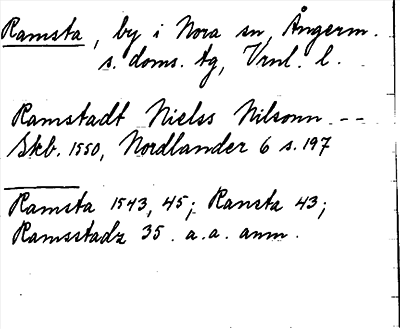 Ramsta, by i Nora sn, Ångerm.
s. doms. tg, Vrnl. l.
Ramstadt Nielss Nilsonn --
Skb. 1550, Nordlander 6 s. 197
Ramsta 1543, 45; Ransta 43;
Ramsstadz 35. a.a. anm.